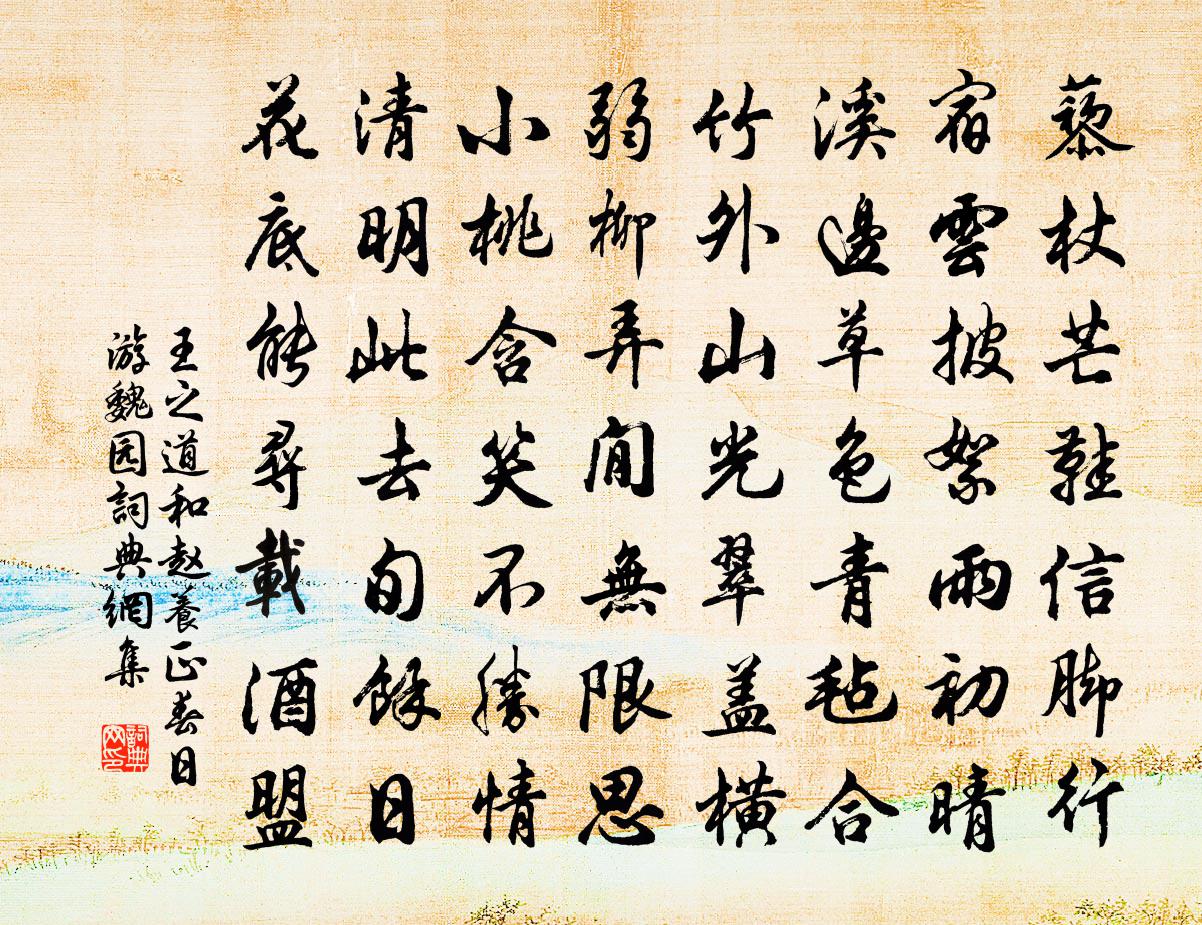 藜杖芒鞋信脚行
宿雲披絮雨初晴
溪邊草色青毡合
竹外山光翠蓋橫
弱柳弄閒無限思
小桃含笑不勝情
清明此去旬餘日
花底能尋載酒盟
王之道和赵養正春日
游魏园詞典網集
詞典
网印